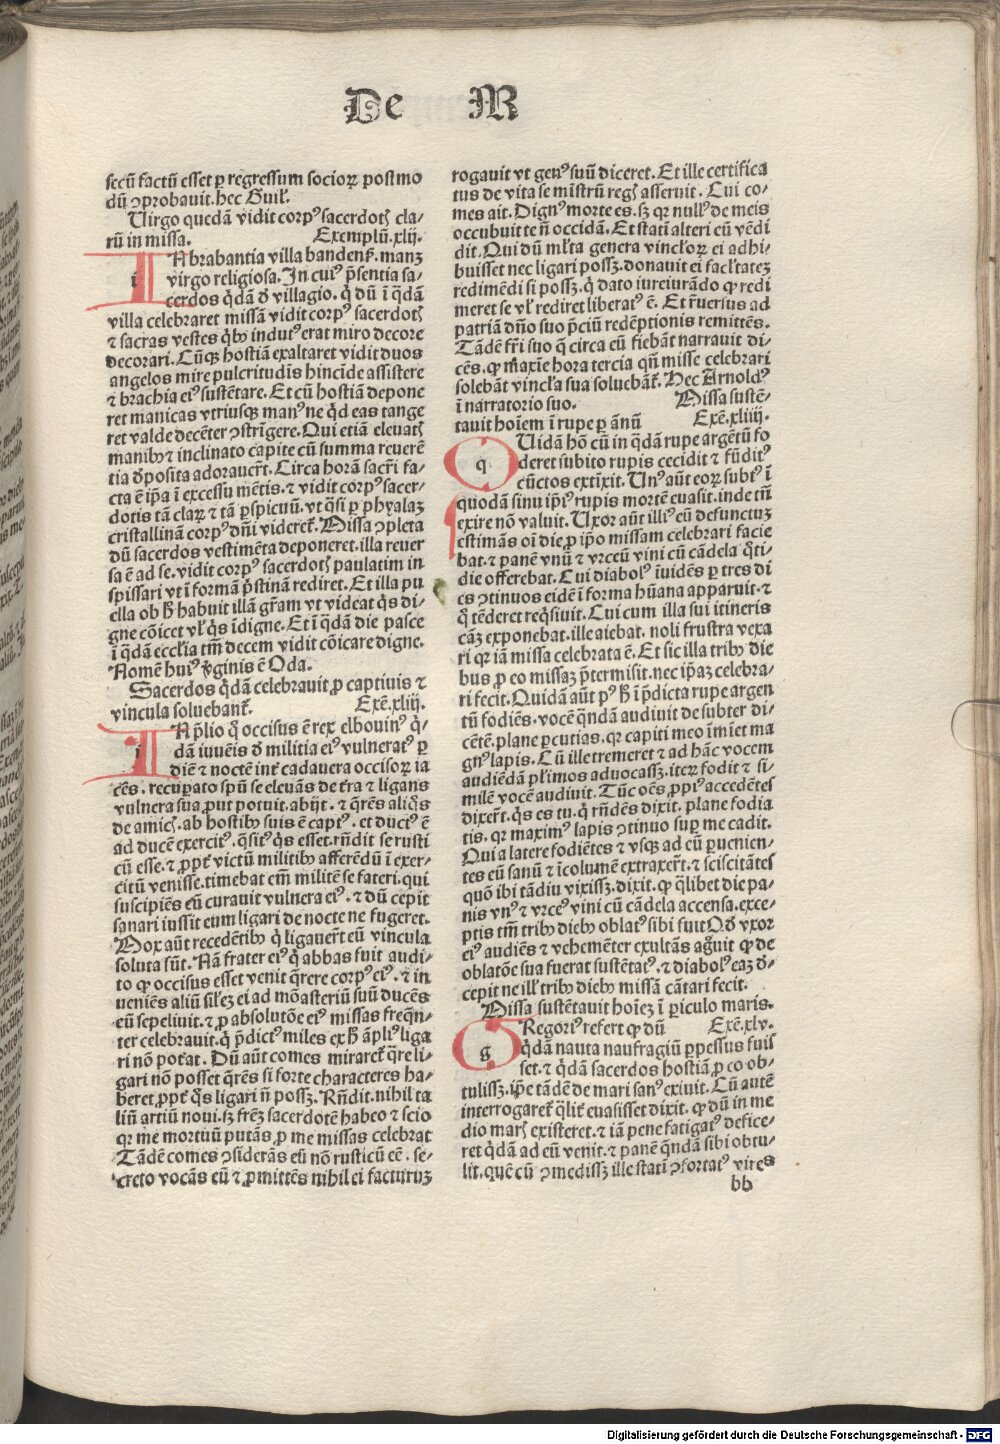 De M
secū factū esset ꝑ regressum socioꝝ postmo
dū ꝯprobauit. hec Guil̕.
Uirgo quedā vidit corpꝰ sacerdotꝭ cla⸗
rū in missa. Exemplū.xlij.
IN brabantia villa handenk̕. manꝫ
virgo religiosa. In cuiꝰ p̄sentia sa⸗
cerdos q̇dā ð villagio. q̇ dū ī q̄dā
villa celebraret missā vidit corpꝰ sacerdotꝭ
⁊ sacras vestes q̇bꝰ indutꝰ erat miro decore
decorari. Cūqꝫ hostiā exaltaret vidit duos
angelos mire pulcritudīs hincide assistere
⁊ brachia eiꝰ sustētare. Et cū hostiā depone
ret manicas vtriusqꝫ manꝰ ne q̇d eas tange
ret valde decēter ꝯstrīgere. Qui etiā eleuatꝭ
manibꝰ ⁊ inclinato capite cū summa reuerē
tia ðposita adorauerūt. Circa horā sacri fa⸗
cta ē ip̄a ī excessu mētis. ⁊ vidit corpꝰ sacer⸗
dotis tā claꝝ ⁊ tā ꝑspicuū. vt q̄si ꝑ phyalaꝫ
cristallinā corpꝰ dn̄i videret̕. Missa ꝯpleta
dū sacerdos vestimēta deponeret. illa reuer
sa ē ad se. vidit corpꝰ sacerdotꝭ paulatim in
spissari vt ī formā p̄stinā rediret. Et illa pu
ella ob h̄ habuit illā gr̄am vt videat q̇s di⸗
gne cōicet vl̕ q̇s īdigne. Et ī q̄dā die pasce
ī q̄dā eccl̕ia tm̄ decem vidit cōicare digne.
Nomē huiꝰ v̄ginis ē Oda.
Sacerdos q̇dā celebrauit ꝓ captiuis ⁊
vincula soluebant̕. Exē.xliij.
IN p̄lio q̊ occisus ē rex elbouinꝰ q̇⸗
dā iuuēis ð militia eiꝰ vulneratꝰ ꝑ
diē ⁊ noctē int̕ cadauera occisoꝝ ia
cēs. recuꝑato spū se eleuās de t̕ra ⁊ ligans
vulnera sua ꝓut potuit. abijt. ⁊ q̄rēs aliq̇s
de amicꝭ. ab hostibꝰ suis ē captꝰ. et ductꝰ ē
ad ducē exercitꝰ. q̄sitꝰ q̇s esset. rn̄dit se rusti
cū esse. ⁊ ꝓpt̕ victū militibꝰ afferēdū ī exer⸗
citū venisse. timebat em̄ militē se fateri. qui
suscipiēs eū curauit vulnera eiꝰ. ⁊ dū cepit
sanari iussit eum ligari de nocte ne fugeret.
Mox aūt recedētibꝰ q̇ ligauer̄t eū vincula
soluta sūt. Nā frater eiꝰ q̇ abbas fuit audi⸗
to ꝙ occisus esset venit q̄rere corpꝰ eiꝰ. ⁊ in
ueniēs aliū sil̕eꝫ ei ad mōasteriū suū ducēs
eū sepeliuit. ⁊ ꝓ absolutōe eiꝰ missas freq̄n⸗
ter celebrauit. q̇ p̄dictꝰ miles ex h̄ āpliꝰ liga
ri nō pot̕at. Dū aūt comes miraret̕ q̄re li⸗
gari nō posset q̄rēs si forte characteres ha⸗
beret ꝓpt̕ q̇s ligari n̄ possꝫ. Rn̄dit. nihil ta
liū artiū noui. sꝫ frēꝫ sacerdotē habeo ⁊ scio
qꝛ me mortuū putās ꝓ me missas celebrat
Tādē comes ꝯsiderās eū nō rusticū eē. se⸗
creto vocās eū ⁊ ꝓmittēs nihil ei facturuꝫ
rogauit vt genꝰ suū diceret. Et ille certifica
tus de vita se mīstrū regꝭ asseruit. Cui co⸗
mes ait. Dignꝰ morte es. sꝫ qꝛ nullꝰ de meis
occubuit te n̄ occidā. Et stati alteri eū vēdi
dit. Qui dū ml̕ta genera vincl̕oꝝ ei adhi⸗
buisset nec ligari possꝫ. donauit ei facl̕tateꝫ
redimēdi si posꝫ. q̇ dato iureiurādo ꝙ redi
meret se vl̕ rediret liberatꝰ ē. Et r̄uersus ad
patriā dn̄o suo p̄ciū redēptionis remittēs.
Tādē fr̄i suo q̄ circa eū fiebāt narrauit di⸗
cēs. ꝙ maxīe hora tercia qn̄ misse celebrari
solebāt vincl̕a sua soluebāt̕. Hec Arnoldꝰ
ī narratorio suo. Missa sustē⸗
tauit hoīem ī rupe ꝑ ānū Exē.xliiij.
QUidā hō cū in q̄dā rupe argētū fo
deret subito rupis cecidit ⁊ fūditꝰ
cūctos extīxit. Unꝰ aūt eoꝝ subtꝰ ī
quodā sinu ip̄iꝰ rupis mortē euasit. inde tn̄
exire nō valuit. Uxor aūt illiꝰ eū defunctuꝫ
estimās oī die ꝓ ip̄o missam celebrari facie
bat. ⁊ panē vnū ⁊ vrceū vini cū cādela q̊ti⸗
die offerebat. Cui diabolꝰ īuidēs ꝑ tres di
es ꝯtinuos eidē ī forma hūana apparuit. ⁊
q̊ tēderet reqsiuit. Cui cum illa sui itineris
cāꝫ exponebat. ille aiebat. noli frustra vexa
ri qꝛ iā missa celebrata ē. Et sic illa tribꝰ die
bus ꝓ eo missaꝫ p̄termisit. nec ip̄aꝫ celebra⸗
ri fecit. Quidā aūt pꝰ h̄ ī p̄dicta rupe argen
tū fodiēs. vocē q̄ndā audiuit de subter di⸗
cētē. plane ꝑcutias. qꝛ capiti meo īmīet ma
gnꝰ lapis. Cū ille tremeret ⁊ ad hāc vocem
audiēdā pl̕imos aduocassꝫ. iteꝝ fodit ⁊ si⸗
milē vocē audiuit. Tūc oēs ꝓpiꝰ accedētes
dixer̄t. q̇s es tu. q̇ rn̄dēs dixit. plane fodia
tis. qꝛ maximꝰ lapis ꝯtinuo suꝑ me cadit.
Qui a latere fodiētes ⁊ vsqꝫ ad eū ꝑuenien⸗
tes eū sanū ⁊ īcolumē extraxer̄t. ⁊ sciscitātes
quō ibi tādiu vixissꝫ. dixit. ꝙ q̄libet die pa⸗
nis vnꝰ ⁊ vrceꝰ vini cū cādela accensa. exce⸗
ptis tm̄ tribꝰ diebꝰ oblatꝰ sibi fuit Qð vxor
eiꝰ audiēs ⁊ vehemēter exultās agͦuit ꝙ de
oblatōe sua fuerat sustētatꝰ. ⁊ diabolꝰ eaꝫ ð⸗
cepit ne ill̕ tribꝰ diebꝰ missā cātari fecit.
Missa sustētauit hoīeꝫ ī ꝑiculo maris.
GRegoriꝰ refert ꝙ dū Exē.xlv.
q̇dā nauta naufragiū ꝑpessus fuis
set. ⁊ q̇dā sacerdos hostiā ꝓ eo ob⸗
tulissꝫ. ip̄e tādē de mari sanꝰ exiuit. Cū autē
interrogaret̕ q̄lit̕ euasisset dixit. ꝙ dū in me
dio marꝭ existeret. ⁊ iā pene fatigatꝰ defice⸗
ret q̇dā ad eū venit. ⁊ panē q̄ndā sibi obtu⸗
lit. quē cū ꝯmedissꝫ ille stati ꝯfortatꝰ vires
bb
Digitalisierung gefördert durch die Deutsche Forschungsgemeinschaft - DFG